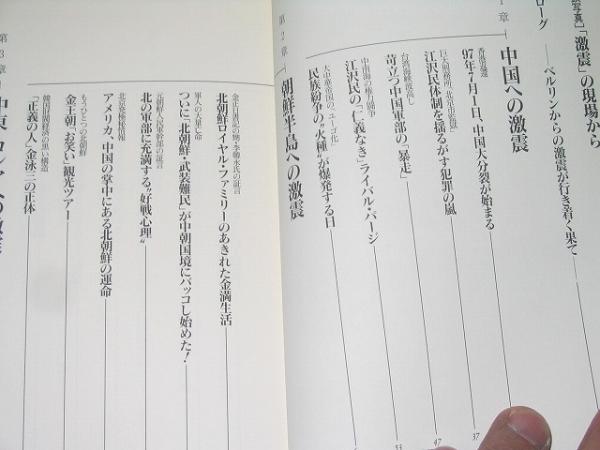 「激震」の現場から
ローグ――ベルリンからの激震が行き着く果て
1章
中国への激震
香港返還
97年7月1日、中国大分裂が始まる
37
江沢民体制を揺るがす犯罪の嵐
47
苛立つ中国軍部の「暴走」
53
江沢民の「仁義なき」ライバル・パージ
民族紛争の〝火種〟が爆発する日
第2章
朝鮮半島への激震
金正日書記の甥・李韓永氏の証言
北朝鮮ロイヤル・ファミリーのあきれた金満生活
軍人の大量亡命
ついに「北朝鮮・武装難民」が中朝国境にバッコし始めた!
元朝鮮人民軍幹部の証言
北の軍部に充満する〝好戦心理〟
北京極秘情報
アメリカ、中国の掌中にある北朝鮮の運命
もうひとつの北朝鮮
金王朝「お笑い」観光ツアー
「正義の人」金泳三の正体
第3章